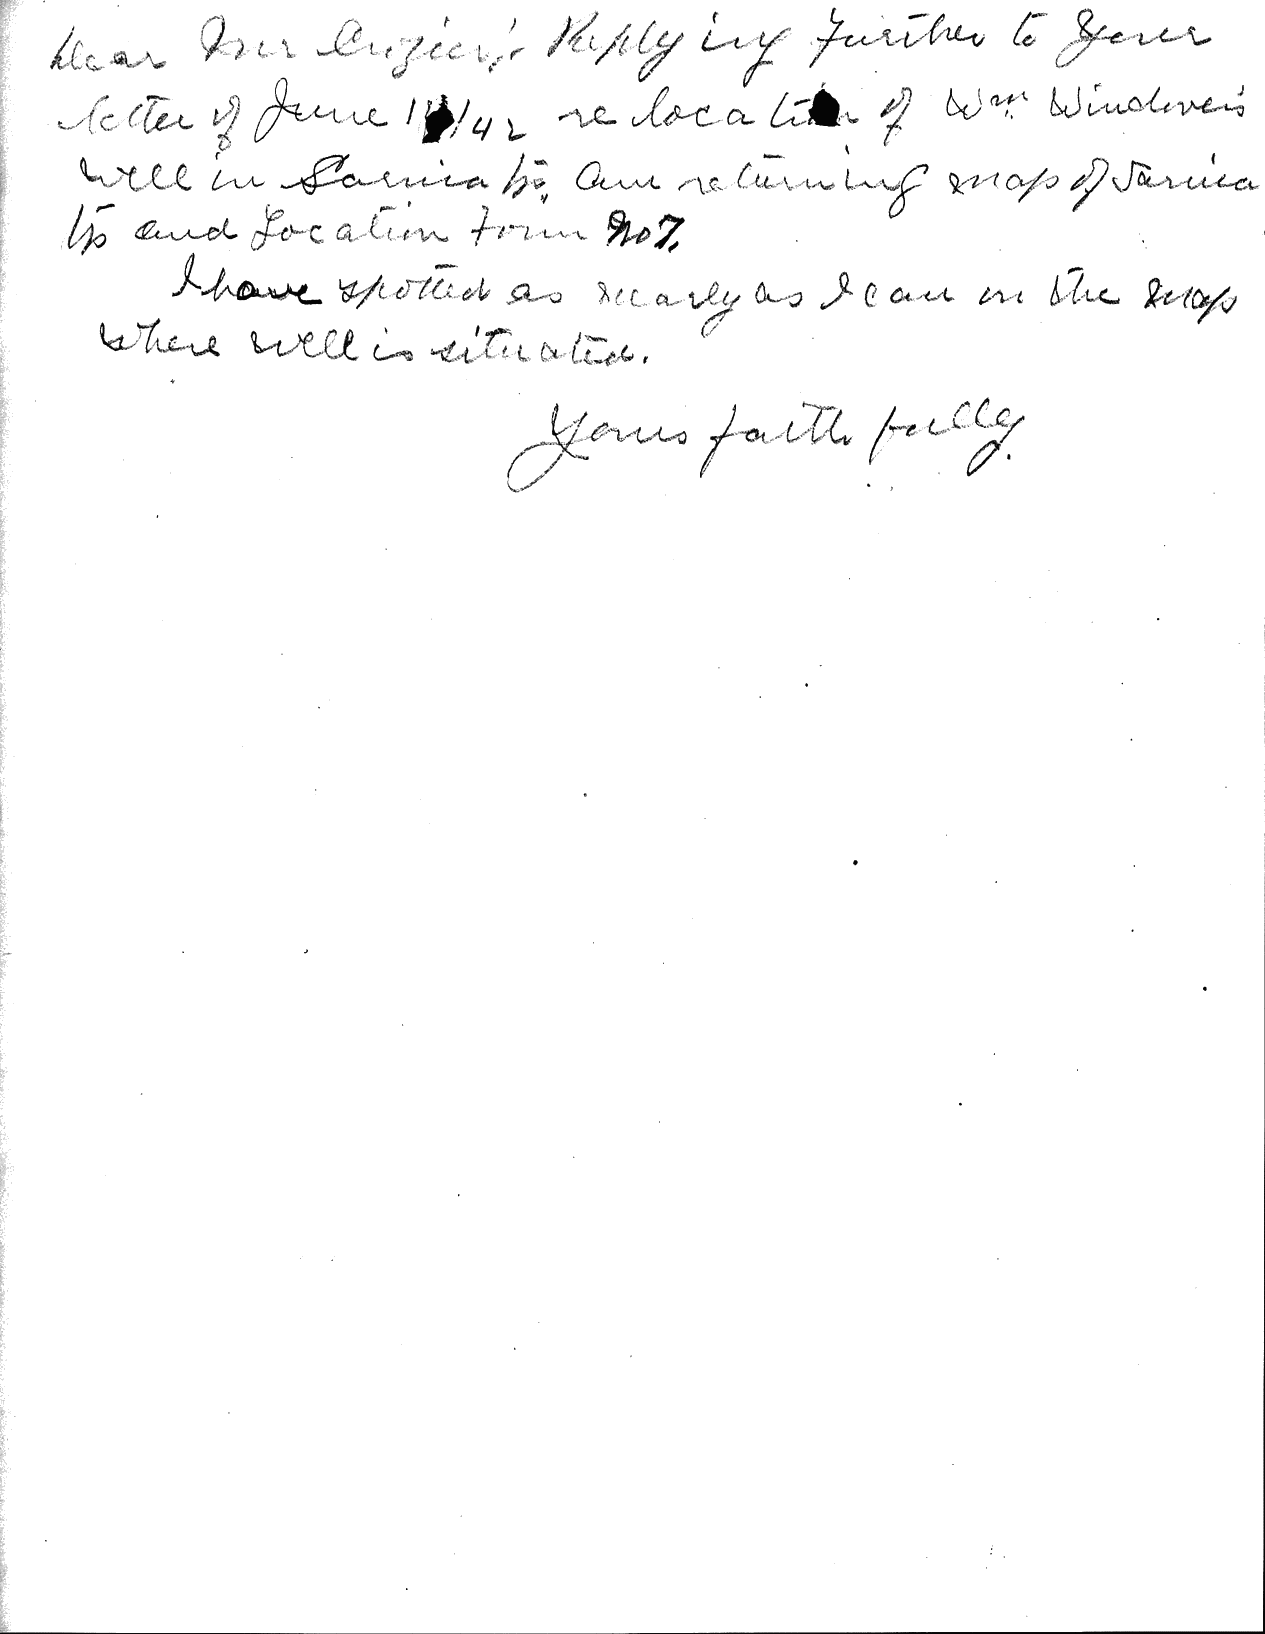 Dear Mr Crozier: Replying further to your
letter of June /42 re location of Wm. Windover's
well in Sarnia tp. Am returning map of Sarnia
tp and Location Form No 7.
I have spotted as nearly as I can on the map
where well is situated.
Yours faithfully.